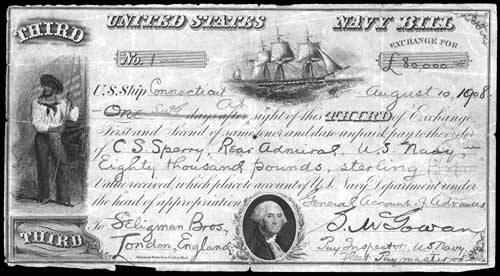 THIRD
UNITED STATES NAVY BILL
No. 1
EXCHANGE FOR
£80,000
U.S. Ship Connecticut August 10, 1908.
At
One days after sight of this THIRD of Exchange
First and Second of same tenor and date unpaid, pay to the order
of C.S. Sperry, Rear Admiral, U.S. Navy,
Eighty thousand pounds, sterling
Value received, which place to account of U.S. Navy Department under
the head of appropriation General Account of Advances
To Seligman Bros,
London, England
THIRD
J. McGowan
Pay Inspector, U.S. Navy
Fleet Paymaster